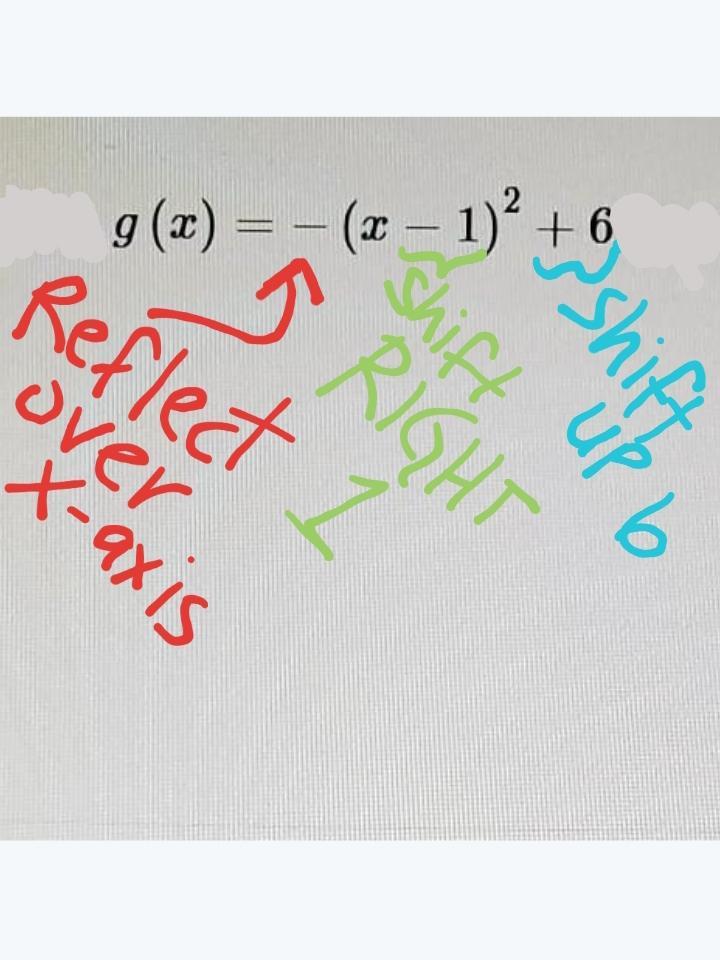 g(x) = −(x − 1)² + 6
Reflect
over
x-axis
shift
RIGHT
1
shift
up
6